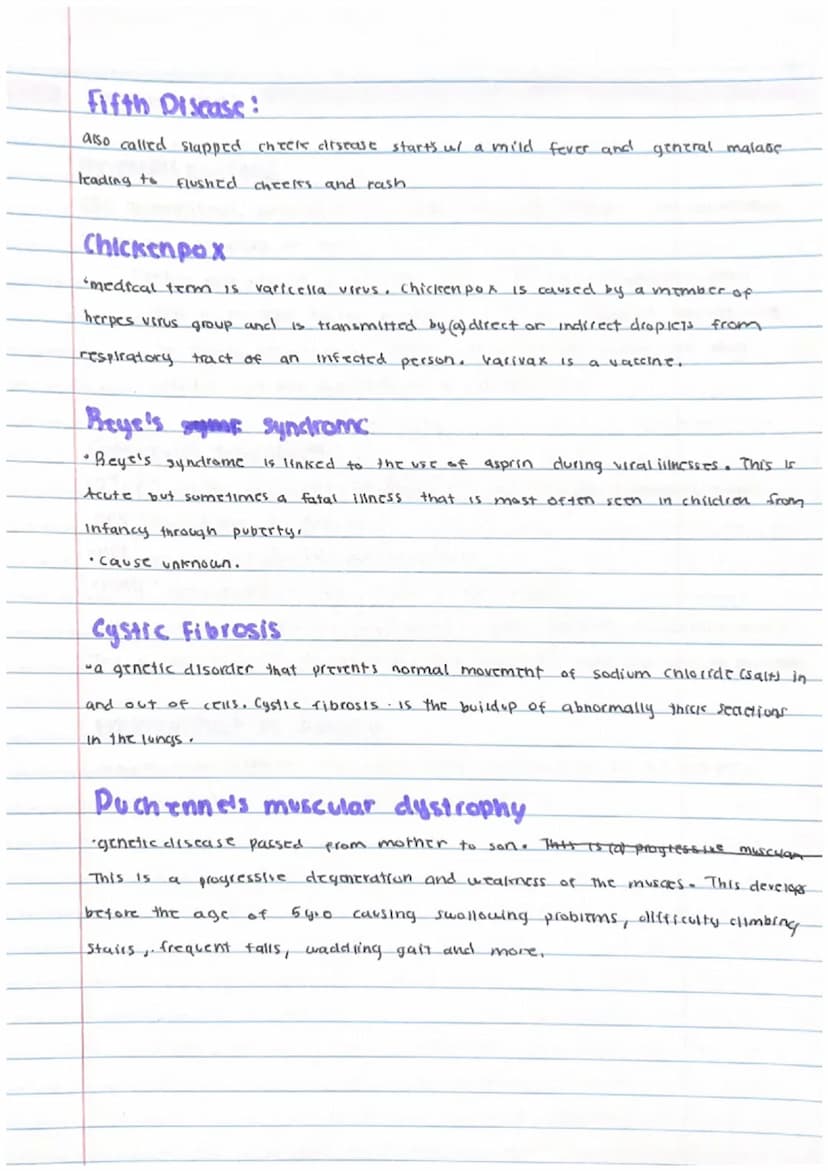 Fifth Disease:
also called slapped cheek disease starts w/ a mild fever and general malase
leading to flushed cheeks and rash
Chickenpox
·medical term is varicella virus. Chickenpox is caused by a member of
herpes virus group and is transmitted by (a) direct or indirect droplets from
respiratory tract of an infected person. Varivax is a vaccine.
Reye's syndrome
·Reye's syndrome is linked to the use of asprin during viral illnesses. This is
Acute but sometimes a fatal illness that is most often seen in children from
infancy through puberty.
·cause unknown.
Cystic Fibrosis
-a genetic disorder that prevents normal movement of sodium chloride (salt) in
and out of cells. Cystic fibrosis · is the buildup of abnormally thick seactions
in the lungs.
Duchenne's muscular dystrophy
·genetic disease passed from mother to son. That is (a) progressive muscular
This is a progressive degeneration and weakness of the muscles. This develops
before the age of 5 y.o causing swollowing problems, difficulty climbing
stairs, frequent falls, waddling gait and more.